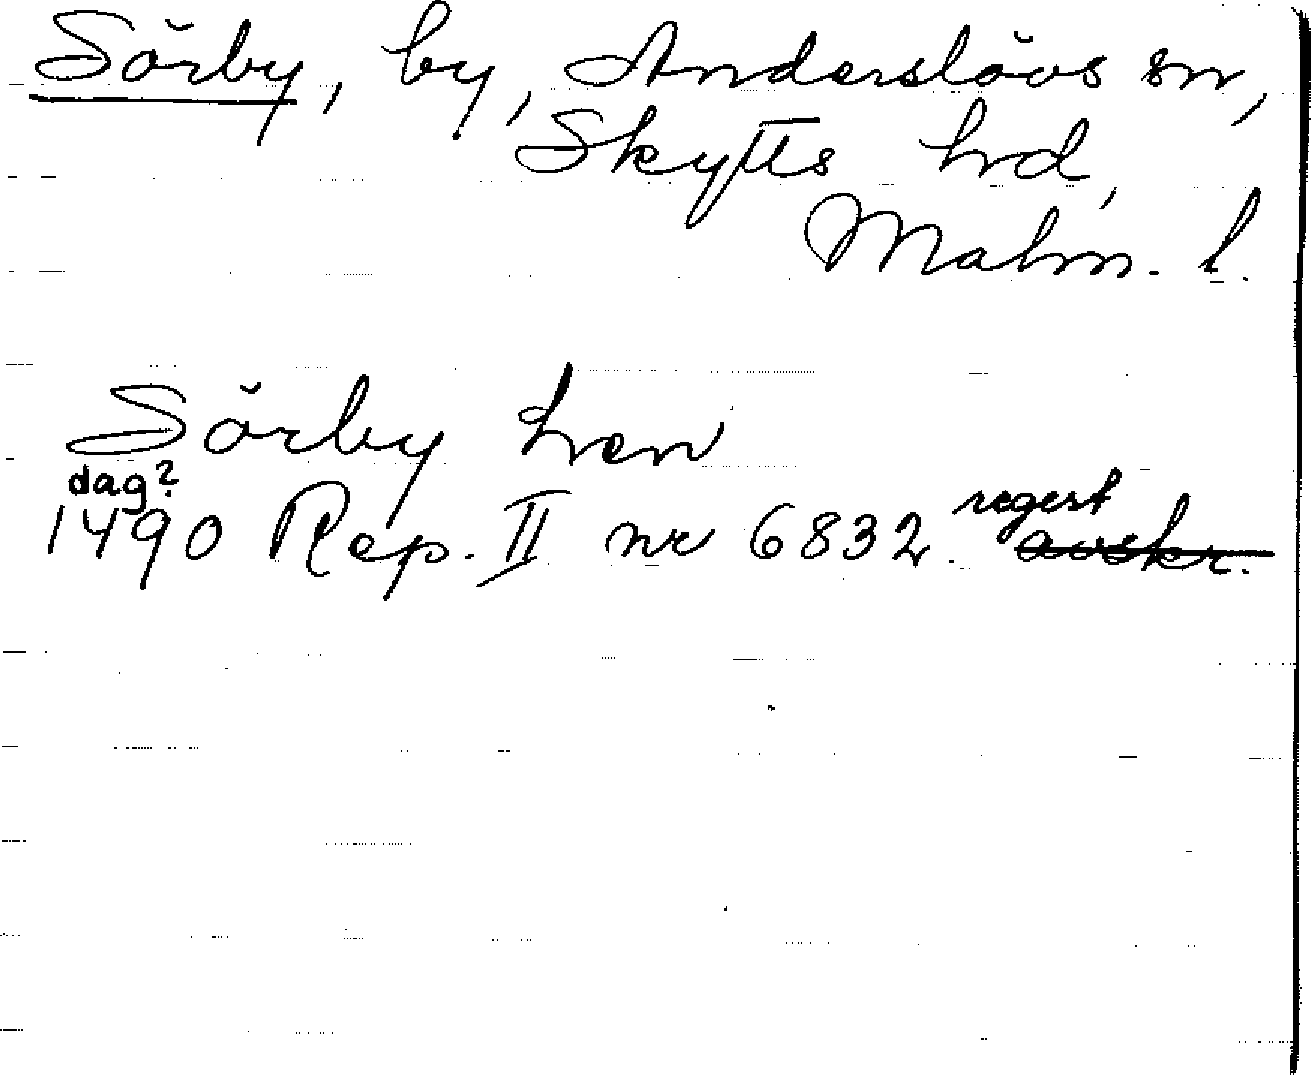 Sörby, by, Anderslövs sn,
Skytts hd,
Malm. l.
Sörby hen
dag?
1490 Rep. II nr 6832. regest avskr.